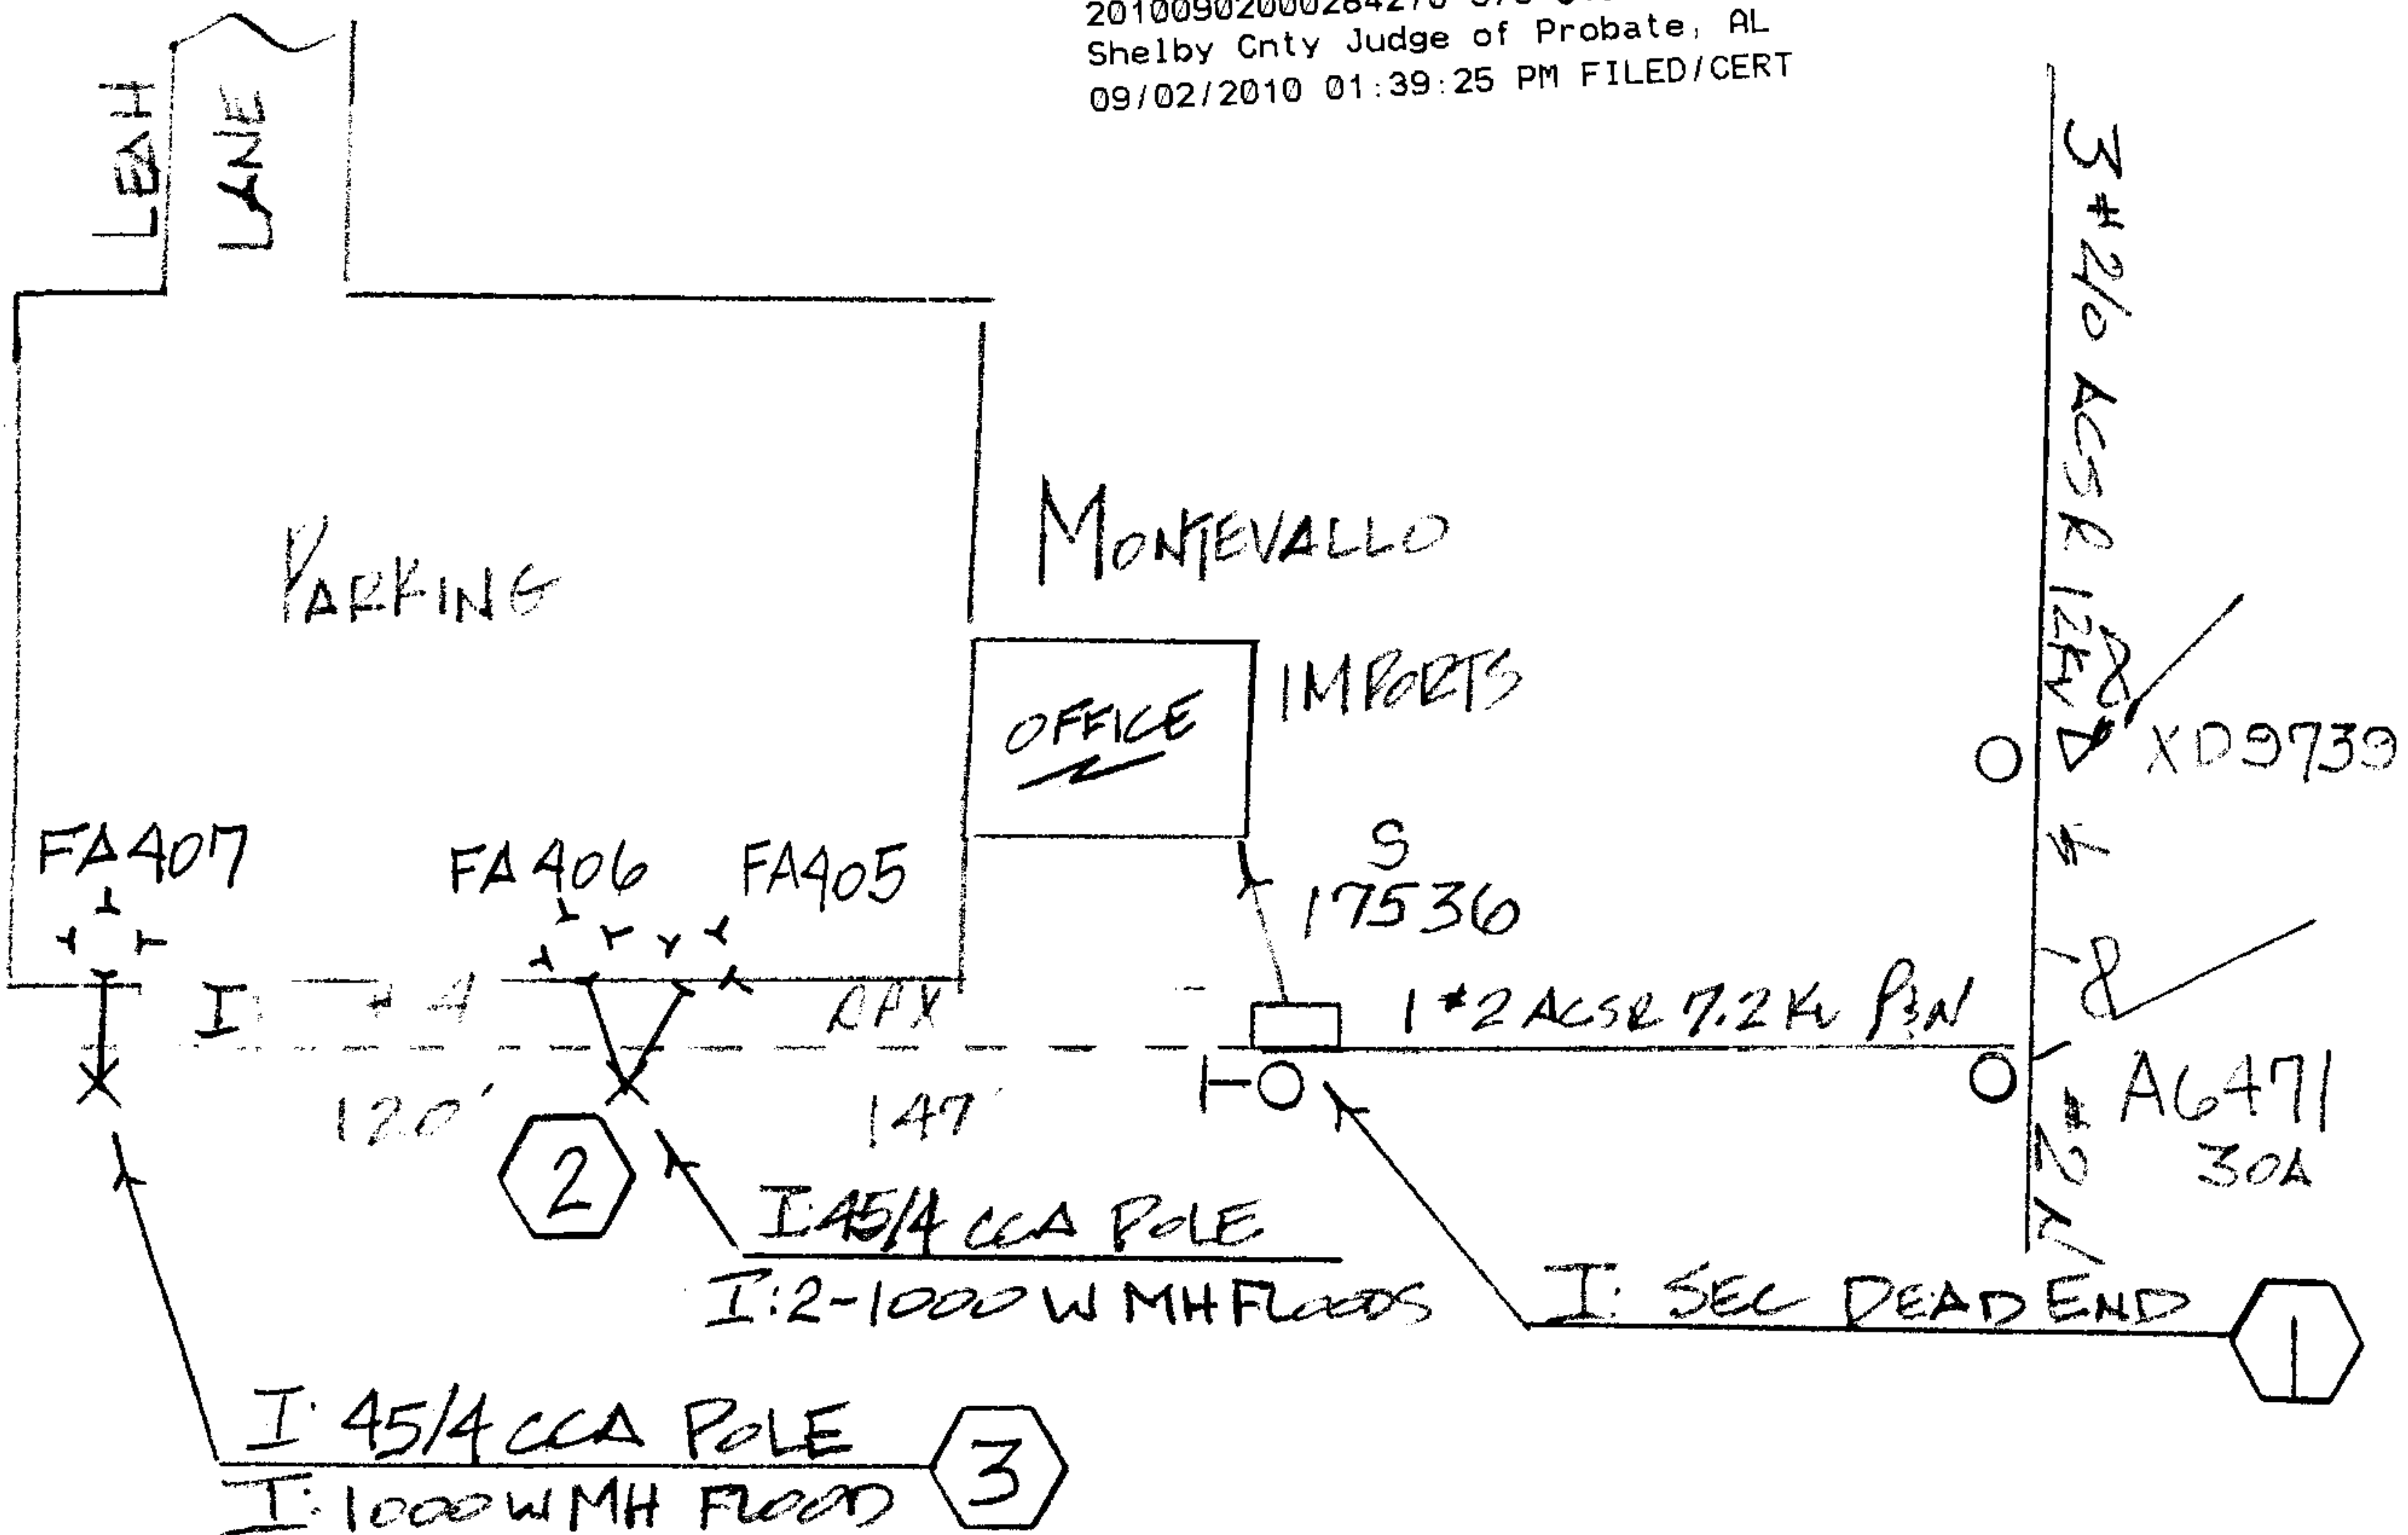 Shelby Cnty Judge of Probate, AL
09/02/2010 01:39:25 PM FILED/CERT
LEAH
LANE
3#2/0 ACSR 12KV
PARKING
MONTEVALLO
IMPORTS
OFFICE
XD9739
FA407
FA406
FA405
S
17536
I: #4
1#2 ACSR 7.2 KV P&N
120'
147'
A6471
30A
#2
2
I: 45/4 CCA POLE
I: 2-1000 W MH FLOODS
I: SEC DEAD END
1
I: 45/4 CCA POLE
3
I: 1000 W MH FLOOD